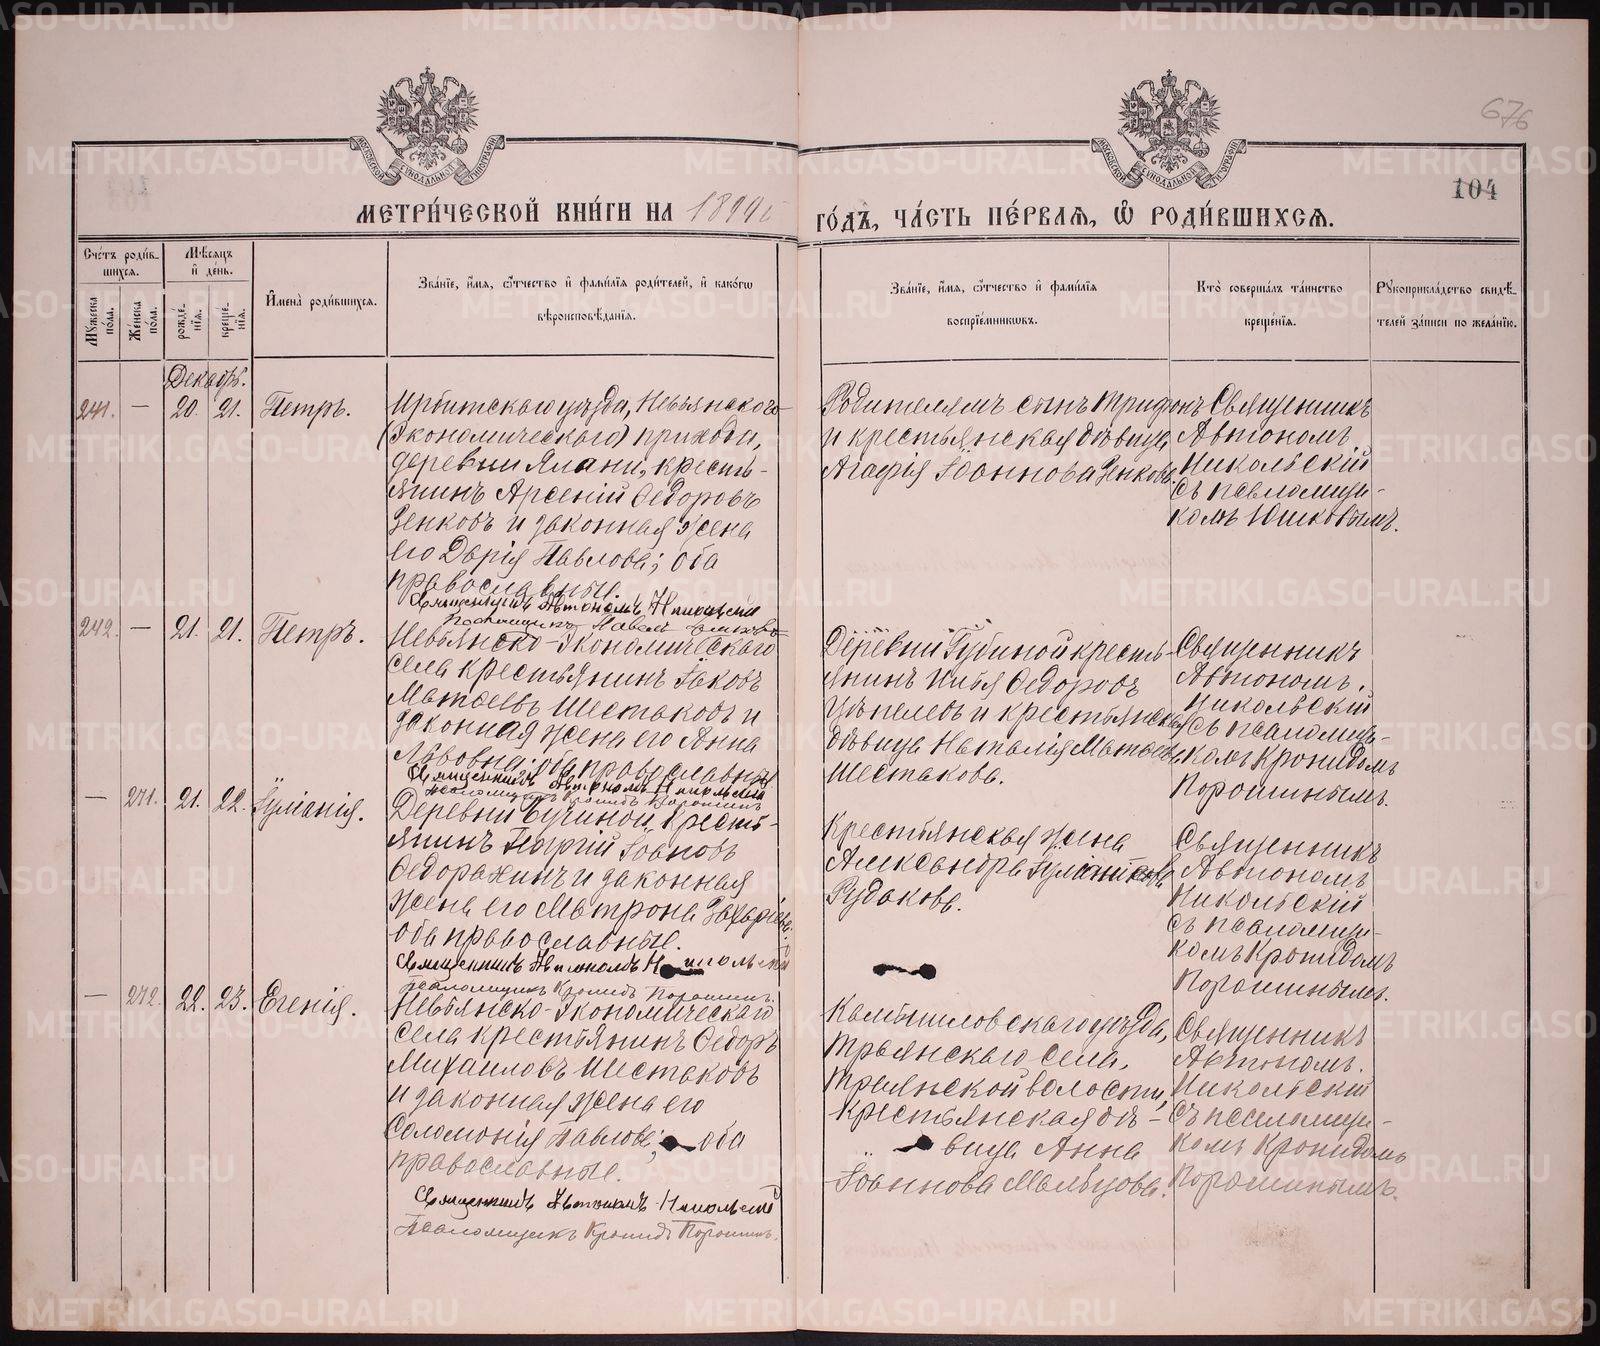 676
104
МЕТРИ́ЧЕСКОЙ КНИ́ГИ НА 1899й ГО́ДЪ, ЧА́СТЬ ПЕ́РВАѦ, Ѡ҆ РОДИ́ВШИХСѦ.
Сче́тъ роди́вшихсѧ.
Мꙋ́жеска по́ла.
Же́нска по́ла.
Мѣ́сѧцъ и҆ де́нь.
рожде́нїѧ.
креще́нїѧ.
И҆мена̀ роди́вшихсѧ.
Зва́нїе, и҆́мѧ, ѻ҆́тчество и҆ фами́лїѧ роди́телей, и҆ како́гѡ
вѣроисповѣ́данїѧ.
Зва́нїе, и҆́мѧ, ѻ҆́тчество и҆ фами́лїѧ
воспрїе́мникѡвъ.
Кто̀ соверша́лъ та́инство
креще́нїѧ.
Рꙋкоприкла́дство свидѣ́-
телей за́писи по жела́нїю.
Декабрь.
241. — 20. 21. Петръ.
Ирбитскаго уѣзда, Невьянско-
(Экономическаго) прихода,
деревни Ялани, кресть-
янинъ Арсеній Ѳедоровъ
Ценковъ и законная жена
его Дарія Павлова; оба
православные.
Священникъ Автономъ Никольскій
Родителямъ сынъ Трифонъ
и крестьянская дѣвица
Агафія Іоаннова Ценкова.
Священникъ
Автономъ
Никольскій
съ псаломщи-
комъ Юшковымъ.
242. — 21. 21. Петръ.
Невьянско-Экономическаго
села крестьянинъ Іаковъ
Матѳеевъ Шестаковъ и
законная жена его Анна
Львовна; оба православные
Священникъ Автономъ Никольскій
Псаломщикъ Кронидъ Порошинъ
Деревни Губиной кресть-
янинъ Илья Ѳедоровъ
и крестьянская
дѣвица Наталія Матѳеева
Шестакова.
Священникъ
Автономъ
Никольскій
съ псаломщи-
комъ Кронидомъ
Порошинымъ.
— 271. 21. 22. Іуліанія.
Деревни крестья-
янинъ Георгій Іоановъ
Ѳедорахинъ и законная
жена его Матрона Захаріева
оба православные.
Священникъ Автономъ Никольскій
Псаломщикъ Кронидъ Порошинъ.
Крестьянская жена
Александра
Рудакова.
Священникъ
Автономъ
Никольскій
съ псаломщи-
комъ Кронидомъ
Порошинымъ.
— 272. 22. 23. Егенія.
Невьянско-Экономическаго
села крестьянинъ Ѳедоръ
Михаиловъ Шестаковъ
и законная жена его
Соломонія Павлова; оба
православные.
Священникъ Автономъ Никольскій
Псаломщикъ Кронидъ Порошинъ.
Камышловскаго уѣзда,
Троянскаго села,
Троянской волости,
крестьянская дѣ-
вица Анна
Іоаннова Мальцова.
Священникъ
Автономъ
Никольскій
съ псаломщи-
комъ Кронидомъ
Порошинымъ.
METRIKI.GASO-URAL.RU